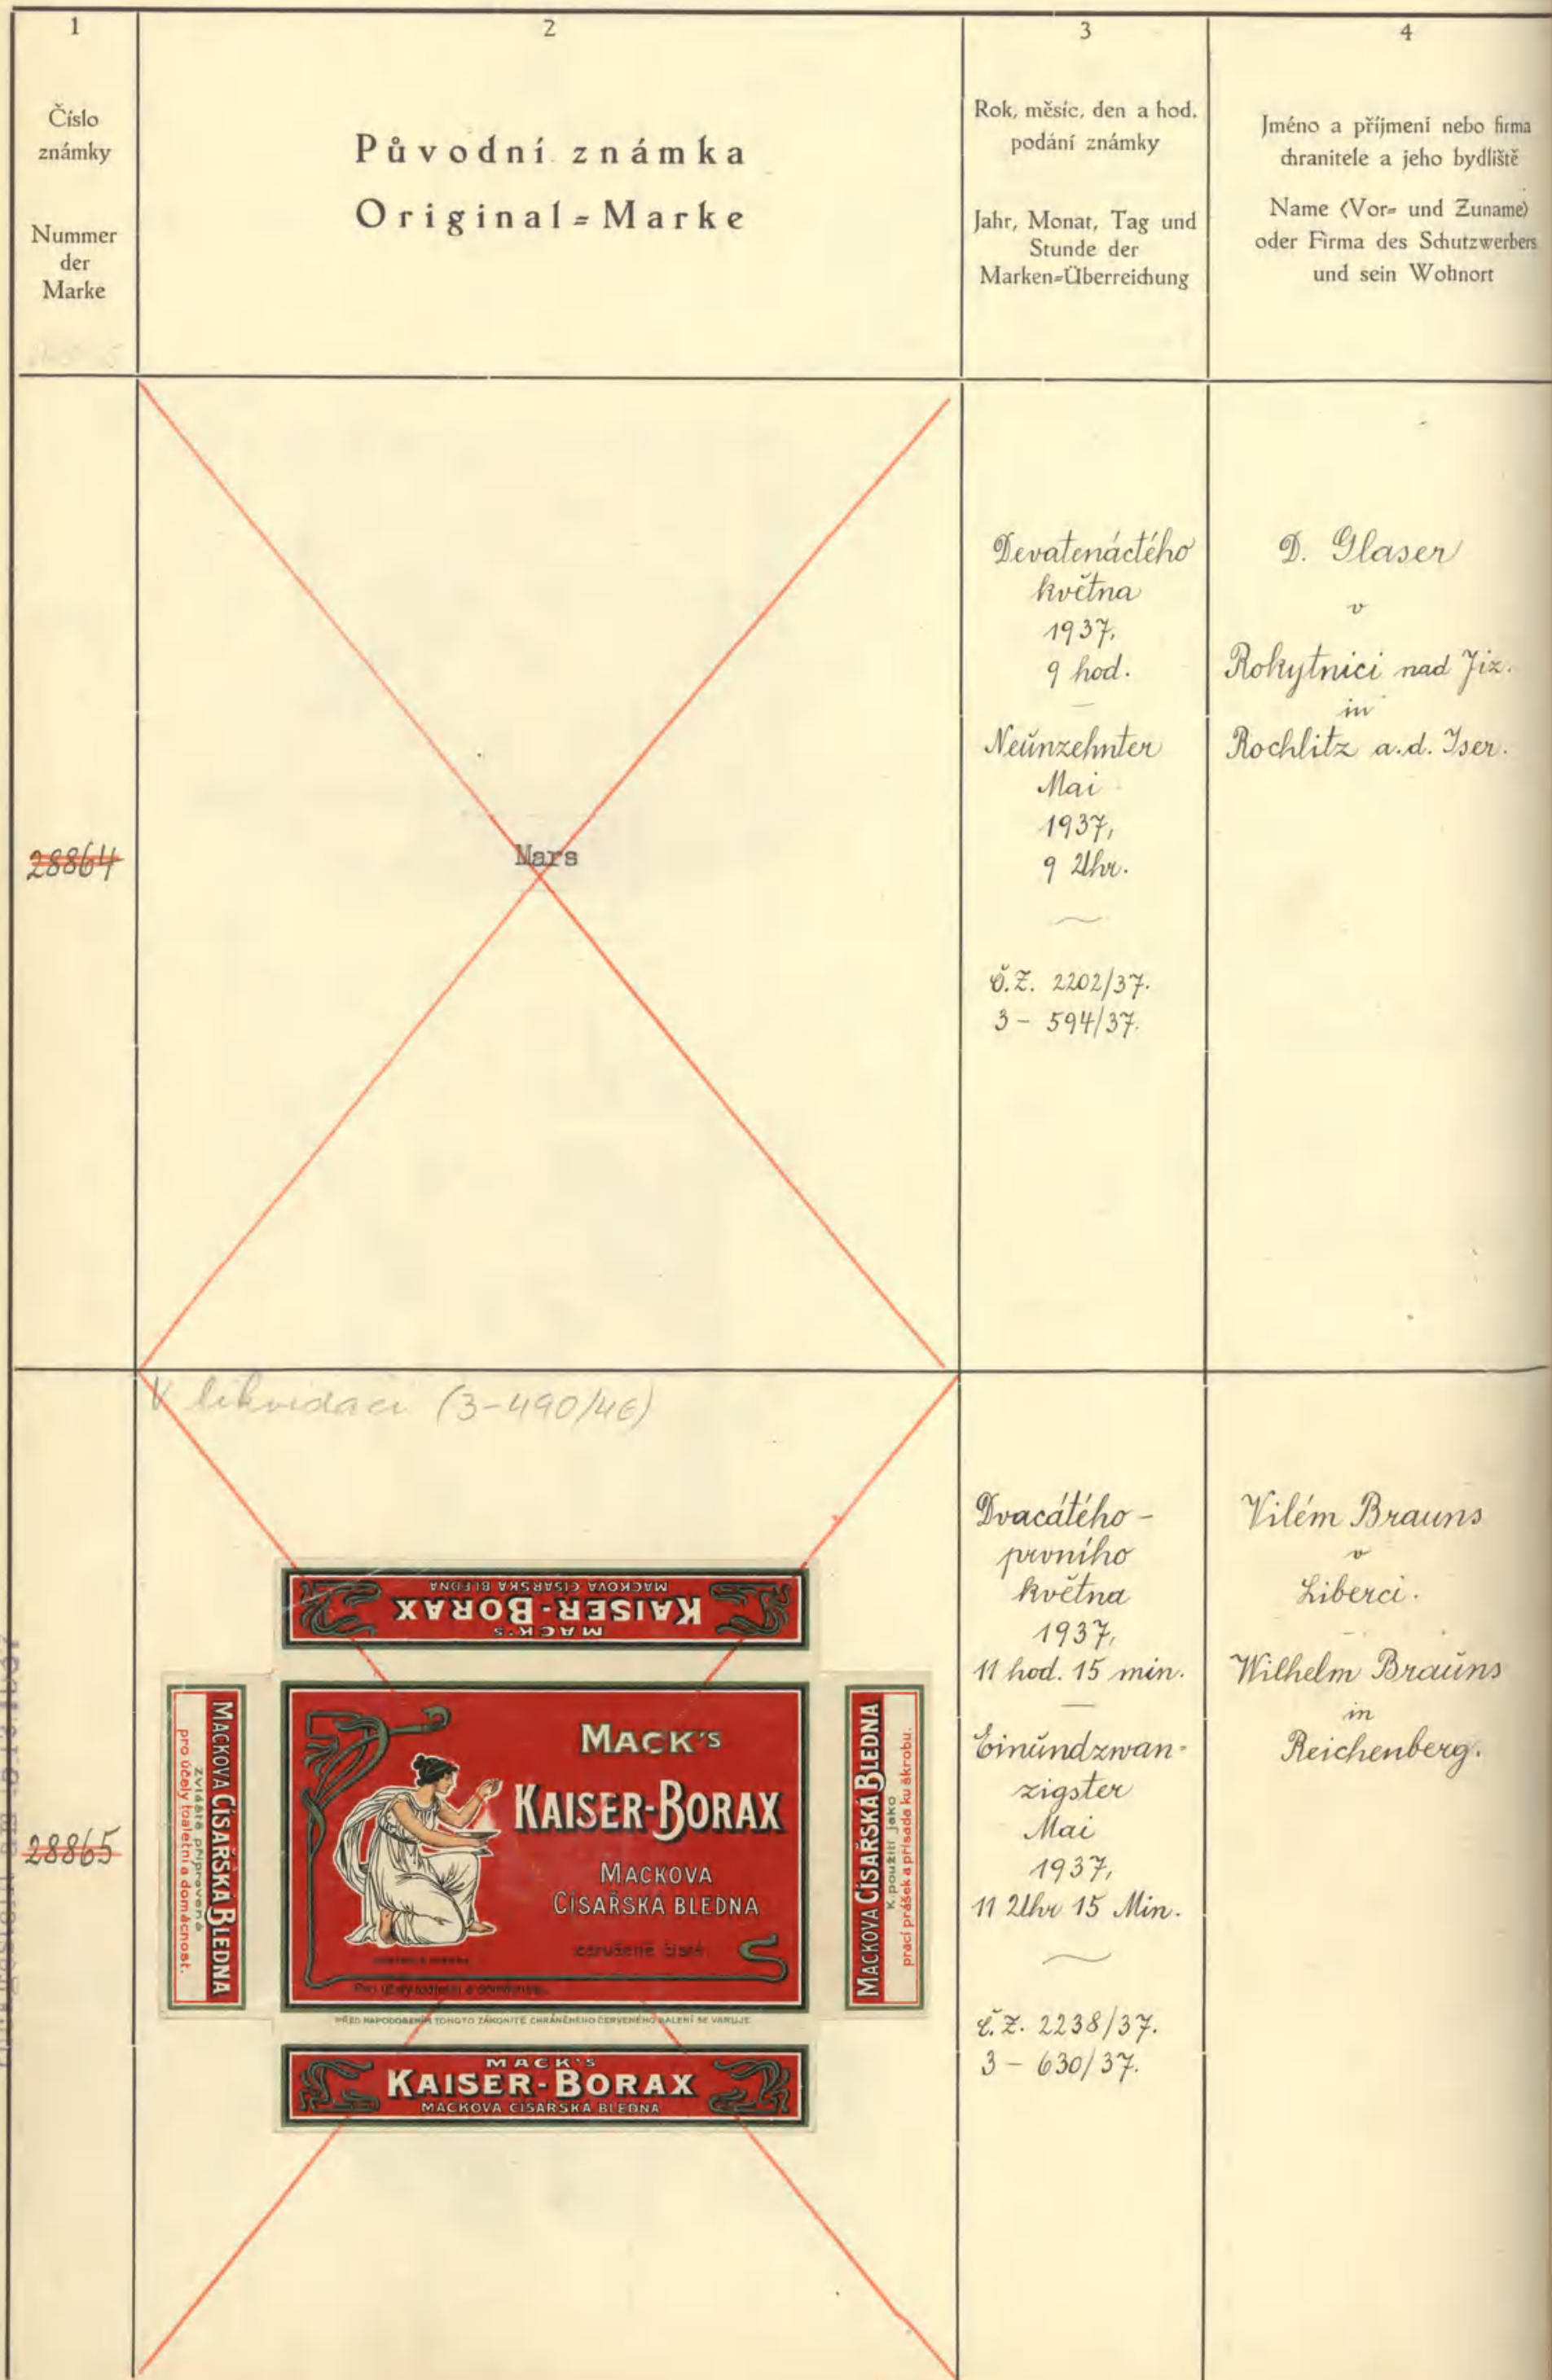 1
Číslo
známky
Nummer
der
Marke
2
Původní známka
Original=Marke
3
Rok, měsíc, den a hod.
podání známky
Jahr, Monat, Tag und
Stunde der
Marken=Überreichung
4
Jméno a příjmení nebo firma
chranitele a jeho bydliště
Name (Vor= und Zuname)
oder Firma des Schutzwerbers
und sein Wohnort
28864
Mars
Devatenáctého
května
1937,
9 hod.
Neŭnzehnter
Mai
1937,
9 Uhr.
Č.Z. 2202/37.
3 - 594/37.
D. Glaser
v
Rokytnici nad Jiz.
in
Rochlitz a.d. Iser.
28865
V likvidaci (3-490/46)
MACK'S
KAISER-BORAX
MACKOVA CÍSAŘSKÁ BLEDNA
MACKOVA CÍSAŘSKÁ BLEDNA
zvláště připravená
pro účely toaletní a domácnost.
MACK'S
KAISER-BORAX
MACKOVA
CÍSAŘSKÁ BLEDNA
zaručeně čistá
Pro účely toaletní a domácnost.
MACKOVA CÍSAŘSKÁ BLEDNA
K použití jako
prací prášek a přísada ku škrobu.
PŘED NAPODOBENÍM TOHOTO ZÁKONITĚ CHRÁNĚNÉHO ČERVENÉHO BALENÍ SE VARUJE
MACK'S
KAISER-BORAX
MACKOVA CÍSAŘSKÁ BLEDNA
Dvacátého-
prvního
května
1937,
11 hod. 15 min.
Einŭndzwan-
zigster
Mai
1937,
11 Uhr 15 Min.
Č.Z. 2238/37.
3 - 630/37.
Vilém Brauns
v
Liberci.
Wilhelm Braŭns
in
Reichenberg.